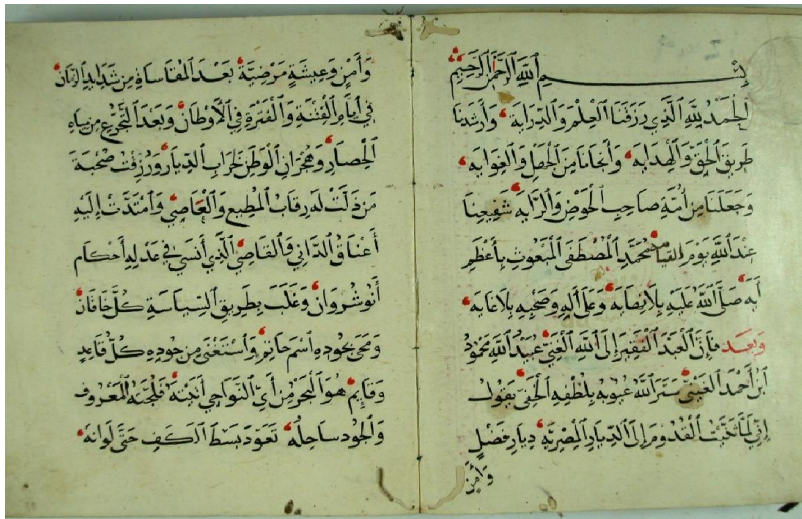 بسم الله الرحمن الرحيم
الحمد لله الذي رزقنا العلم والدراية وأرشدنا
طريق الحق والهداية وأنجانا من الجهل والغواية
وجعلنا من أمة صاحب الحوض والراية شفيعنا
عند الله يوم القيامة محمد المصطفى المبعوث بأعظم
آية صلى الله عليه بلا نهاية وعلى آله وصحبه بلا غاية
وبعد فإن العبد الفقير إلى الله الغني عبيد الله محمود
ابن أحمد العيني ستر الله عيوبه بلطفه الخفي يقول
إني لما القدوم إلى الديار المصرية ديار فضل
وأمن
وأمن وعيشة مرضية بعد المقاساة من شدايد الزمان
في أيام الفتنة والفترة في الأوطان وبعد التجرع من مياه
الحصار وهجران الوطن لخراب الديار ورزقت صحبة
من ذلت له رقاب المطيع والعاصي وامتدت إليه
أعناق الداني والقاصي الذي أنسى في عدله أحكام
أنوشروان وغلب بطريق السياسة كل خاقان
ومحى بجوده اسم حاتم واستغنى من جوده كل قاعد
وقايم هو البحر من أي النواحي أتيته فلجته المعروف
والجود ساحله تعود بسط الكف حتى لوانه